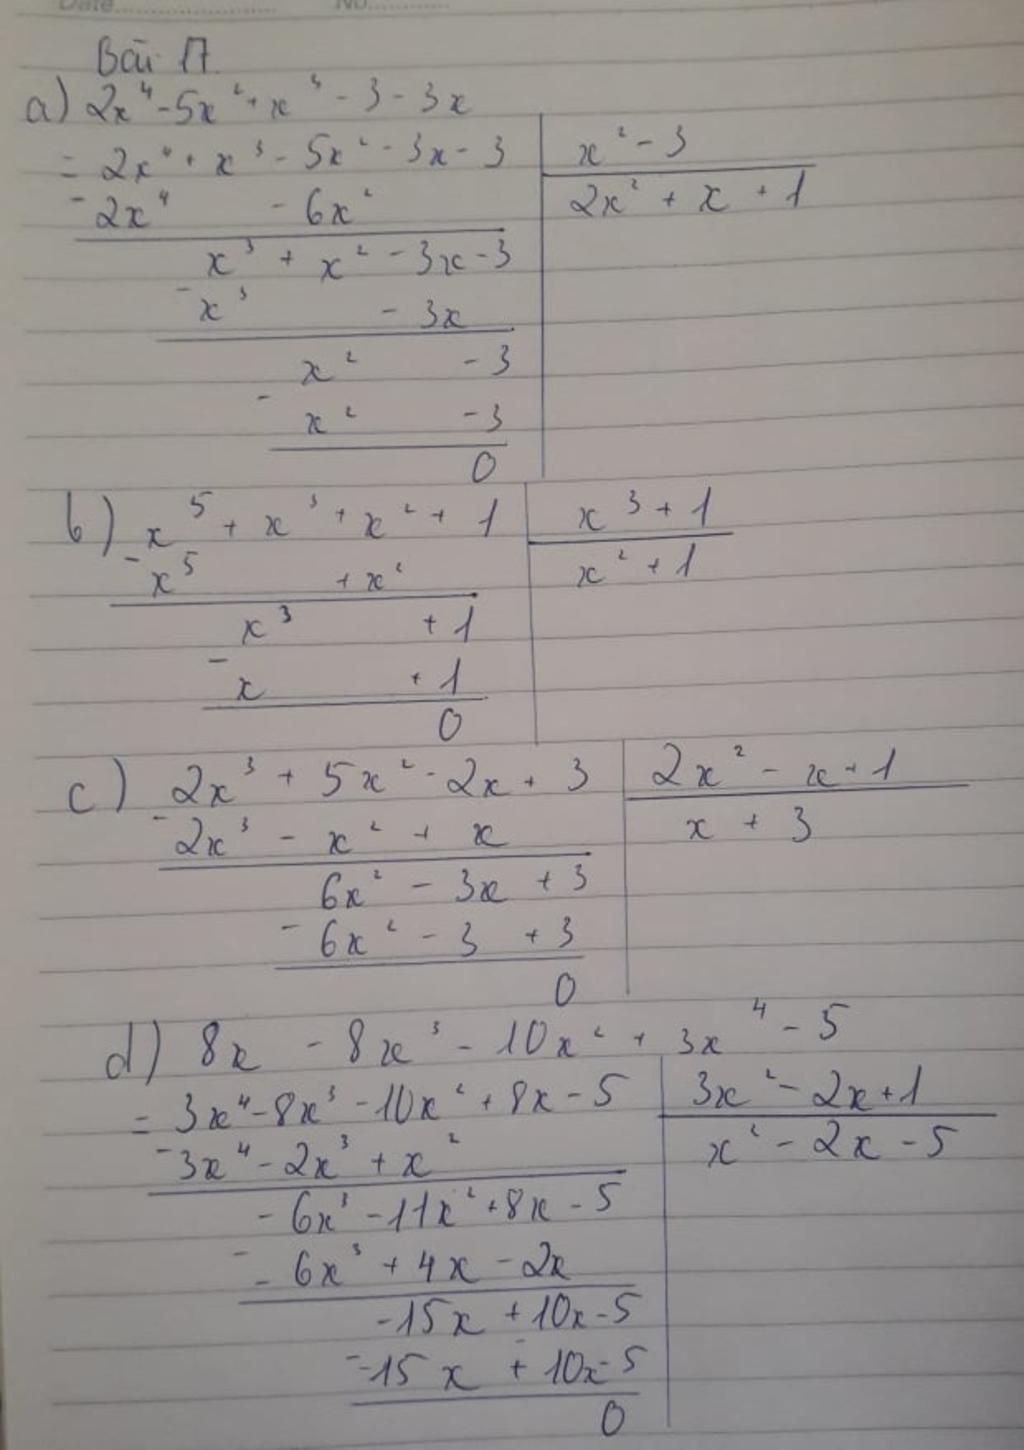 Date.................... No..............
Bài 17
a) 2x⁴ - 5x² + x³ - 3 - 3x
= 2x⁴ + x³ - 5x² - 3x - 3 | x² - 3
- 2x⁴ - 6x² | 2x² + x + 1
x³ + x² - 3x - 3
- x³ - 3x
x² - 3
-
x² - 3
0
b) x⁵ + x³ + x² + 1 | x³ + 1
- x⁵ + x² | x² + 1
x³ + 1
- x + 1
0
c) 2x³ + 5x² - 2x + 3 | 2x² - x + 1
- 2x³ - x² + x | x + 3
6x² - 3x + 3
- 6x² - 3 + 3
0
d) 8x - 8x³ - 10x² + 3x⁴ - 5
= 3x⁴ - 8x³ - 10x² + 8x - 5 | 3x² - 2x + 1
- 3x⁴ - 2x³ + x² | x² - 2x - 5
- 6x³ - 11x² + 8x - 5
- - 6x³ + 4x - 2x
- 15x + 10x - 5
- -15x + 10x - 5
0